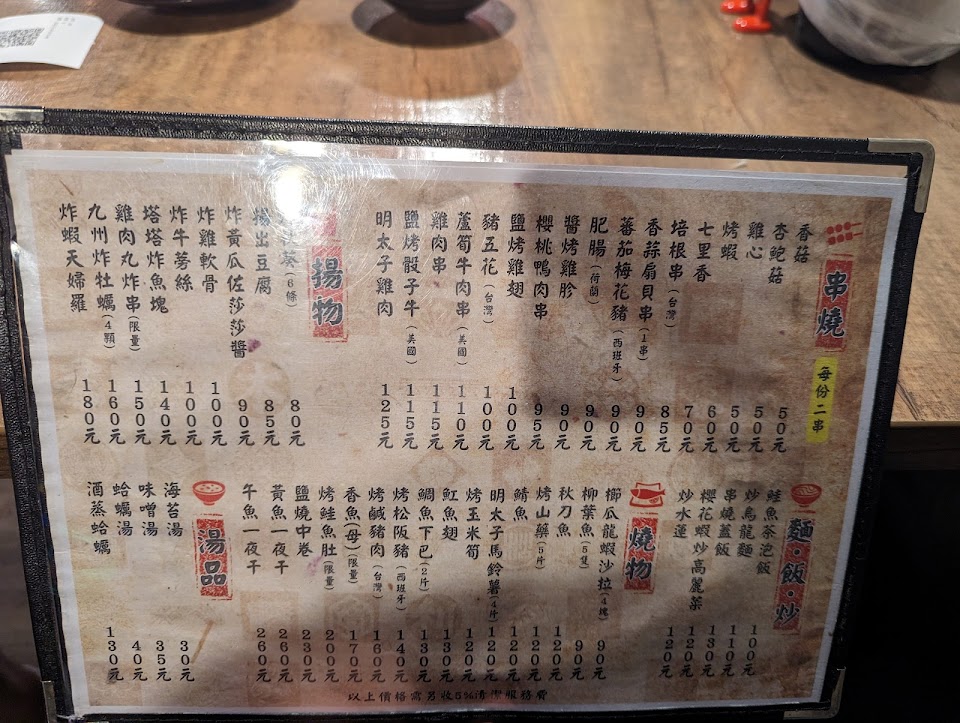 串燒
每份二串
香菇 50元
杏鮑菇 50元
雞心 50元
烤蝦 60元
七里香 70元
培根串(台灣) 85元
香蒜扇貝串(1串) 90元
蕃茄梅花豬(西班牙) 90元
肥腸(荷蘭) 90元
醬烤雞胗 90元
櫻桃鴨肉串 95元
鹽烤雞翅 100元
豬五花(台灣) 100元
蘆筍牛肉串(美國) 110元
雞肉串 115元
鹽烤骰子牛(美國) 115元
明太子雞肉 125元
揚物
葵(6條) 80元
揚出豆腐 85元
炸黃瓜佐莎莎醬 90元
炸雞軟骨 100元
炸牛蒡絲 100元
塔塔炸魚塊 140元
雞肉丸炸串(限量) 150元
九州炸牡蠣(4顆) 160元
炸蝦天婦羅 180元
麵・飯・炒
鮭魚茶泡飯 100元
炒烏龍麵 110元
串燒蓋飯 130元
櫻花蝦炒高麗菜 120元
炒水蓮 120元
燒物
櫛瓜龍蝦沙拉(4塊) 90元
柳葉魚(5隻) 90元
秋刀魚 120元
烤山藥(5片) 120元
鯖魚 120元
明太子馬鈴薯(4片) 120元
烤玉米筍 120元
魟魚翅 130元
鯛魚下巴(2片) 130元
烤松阪豬(西班牙) 140元
烤鹹豬肉(台灣) 160元
香魚(母)(限量) 170元
烤鮭魚肚(限量) 200元
鹽燒中卷 230元
黃魚一夜干 260元
午魚一夜干 260元
湯品
海苔湯 30元
味噌湯 35元
蛤蠣湯 40元
酒蒸蛤蠣 130元
以上價格需另收5%清潔服務費